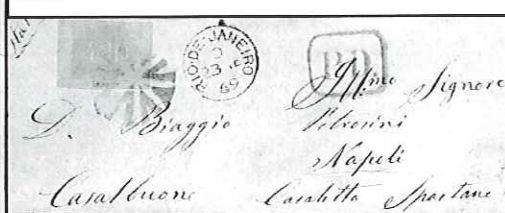 RIO-DE-JANEIRO
23
69
P.D.
Illmo Signore
D. Biaggio
Napoli
Casalbuono Casaletto Spartano